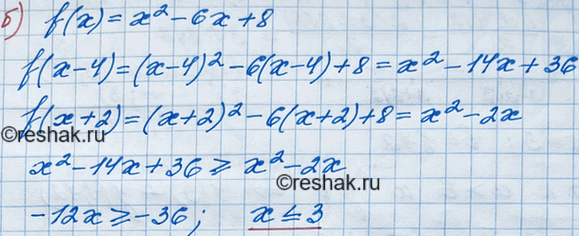 б) f(x) = x² - 6x + 8
f(x-4) = (x-4)² - 6(x-4) + 8 = x² - 14x + 36
©reshak.ru
f(x+2) = (x+2)² - 6(x+2) + 8 = x² - 2x
©reshak.ru
x² - 14x + 36 ⩾ x² - 2x
©reshak.ru
-12x ⩾ -36; x ≤ 3